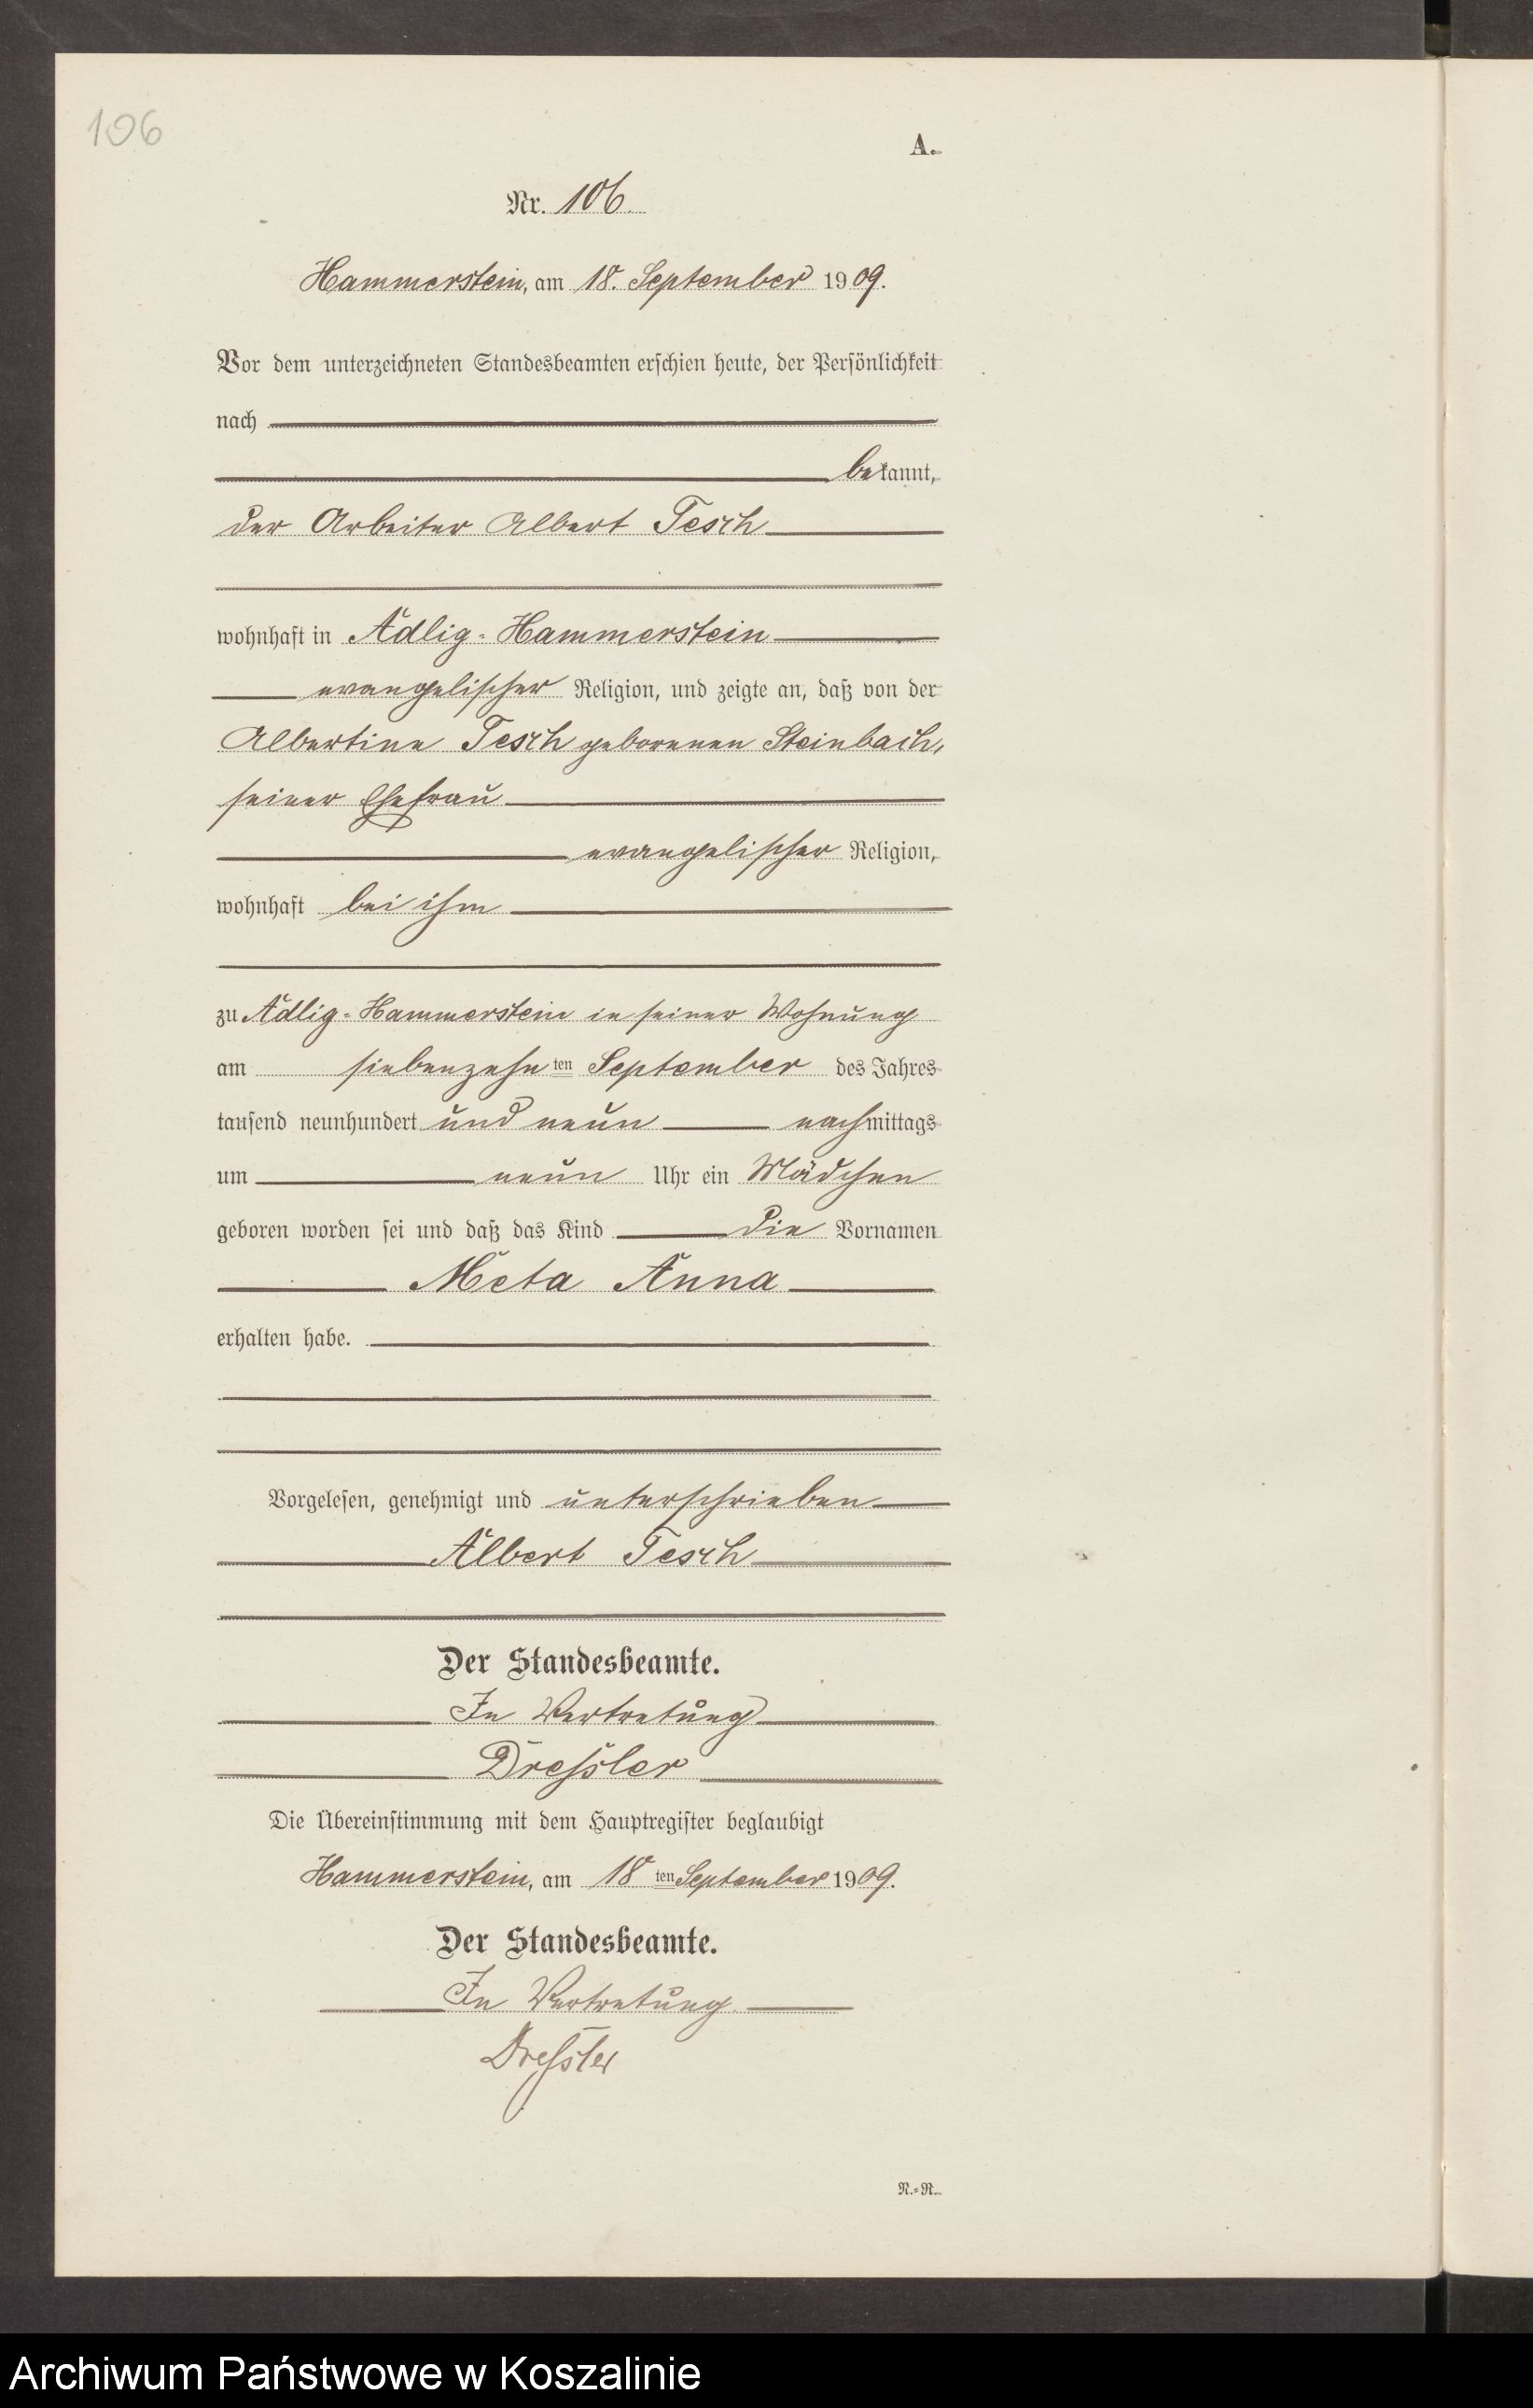 106
A.
Nr. 106.
Hammerstein, am 18. September 1909.
Vor dem unterzeichneten Standesbeamten erschien heute, der Persönlichkeit
nach
bekannt,
der Arbeiter Albert Tesch
wohnhaft in Adlig-Hammerstein
evangelischer Religion, und zeigte an, daß von der
Albertine Tesch geborenen Steinbach,
seiner Ehefrau
evangelischer Religion,
wohnhaft bei ihm
zu Adlig-Hammerstein in seiner Wohnung
am siebenzehnten September des Jahres
tausend neunhundert und neun nachmittags
um neun Uhr ein Mädchen
geboren worden sei und daß das Kind die Vornamen
Meta Anna
erhalten habe.
Vorgelesen, genehmigt und unterschrieben
Albert Tesch
Der Standesbeamte.
In Vertretung
Dreßler
Die Übereinstimmung mit dem Hauptregister beglaubigt
Hammerstein, am 18ten September 1909.
Der Standesbeamte.
In Vertretung
Dreßler
N.-R.
Archiwum Państwowe w Koszalinie